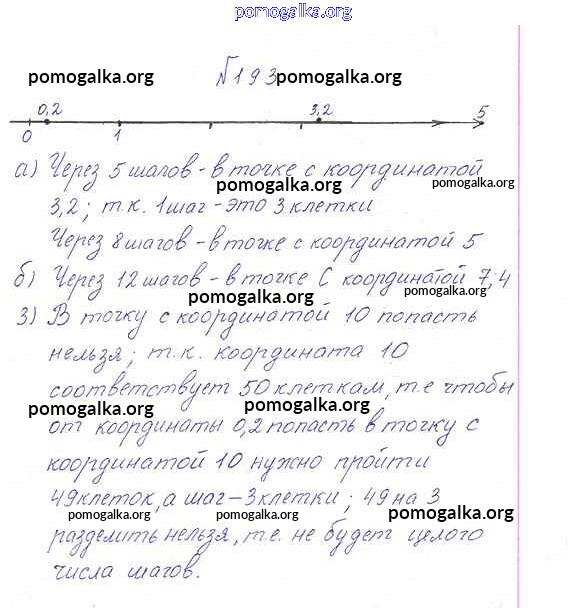 pomogalka.org
№193
pomogalka.org pomogalka.org
0,2 3,2 5
0 1
а) Через 5 шагов - в точке с координатой
pomogalka.org pomogalka.org
3,2; т.к. 1 шаг - это 3 клетки
Через 8 шагов - в точке с координатой 5
pomogalka.org
б) Через 12 шагов - в точке С координатой 7,4
pomogalka.org pomogalka.org
3) В точку с координатой 10 попасть
нельзя; т.к. координата 10
соответствует 50 клеткам, т.е чтобы
pomogalka.org pomogalka.org
от координаты 0,2 попасть в точку с
координатой 10 нужно пройти
49 клеток, а шаг - 3 клетки; 49 на 3
pomogalka.org pomogalka.org pomogalka.org
разделить нельзя, т.е. не будет целого
числа шагов.